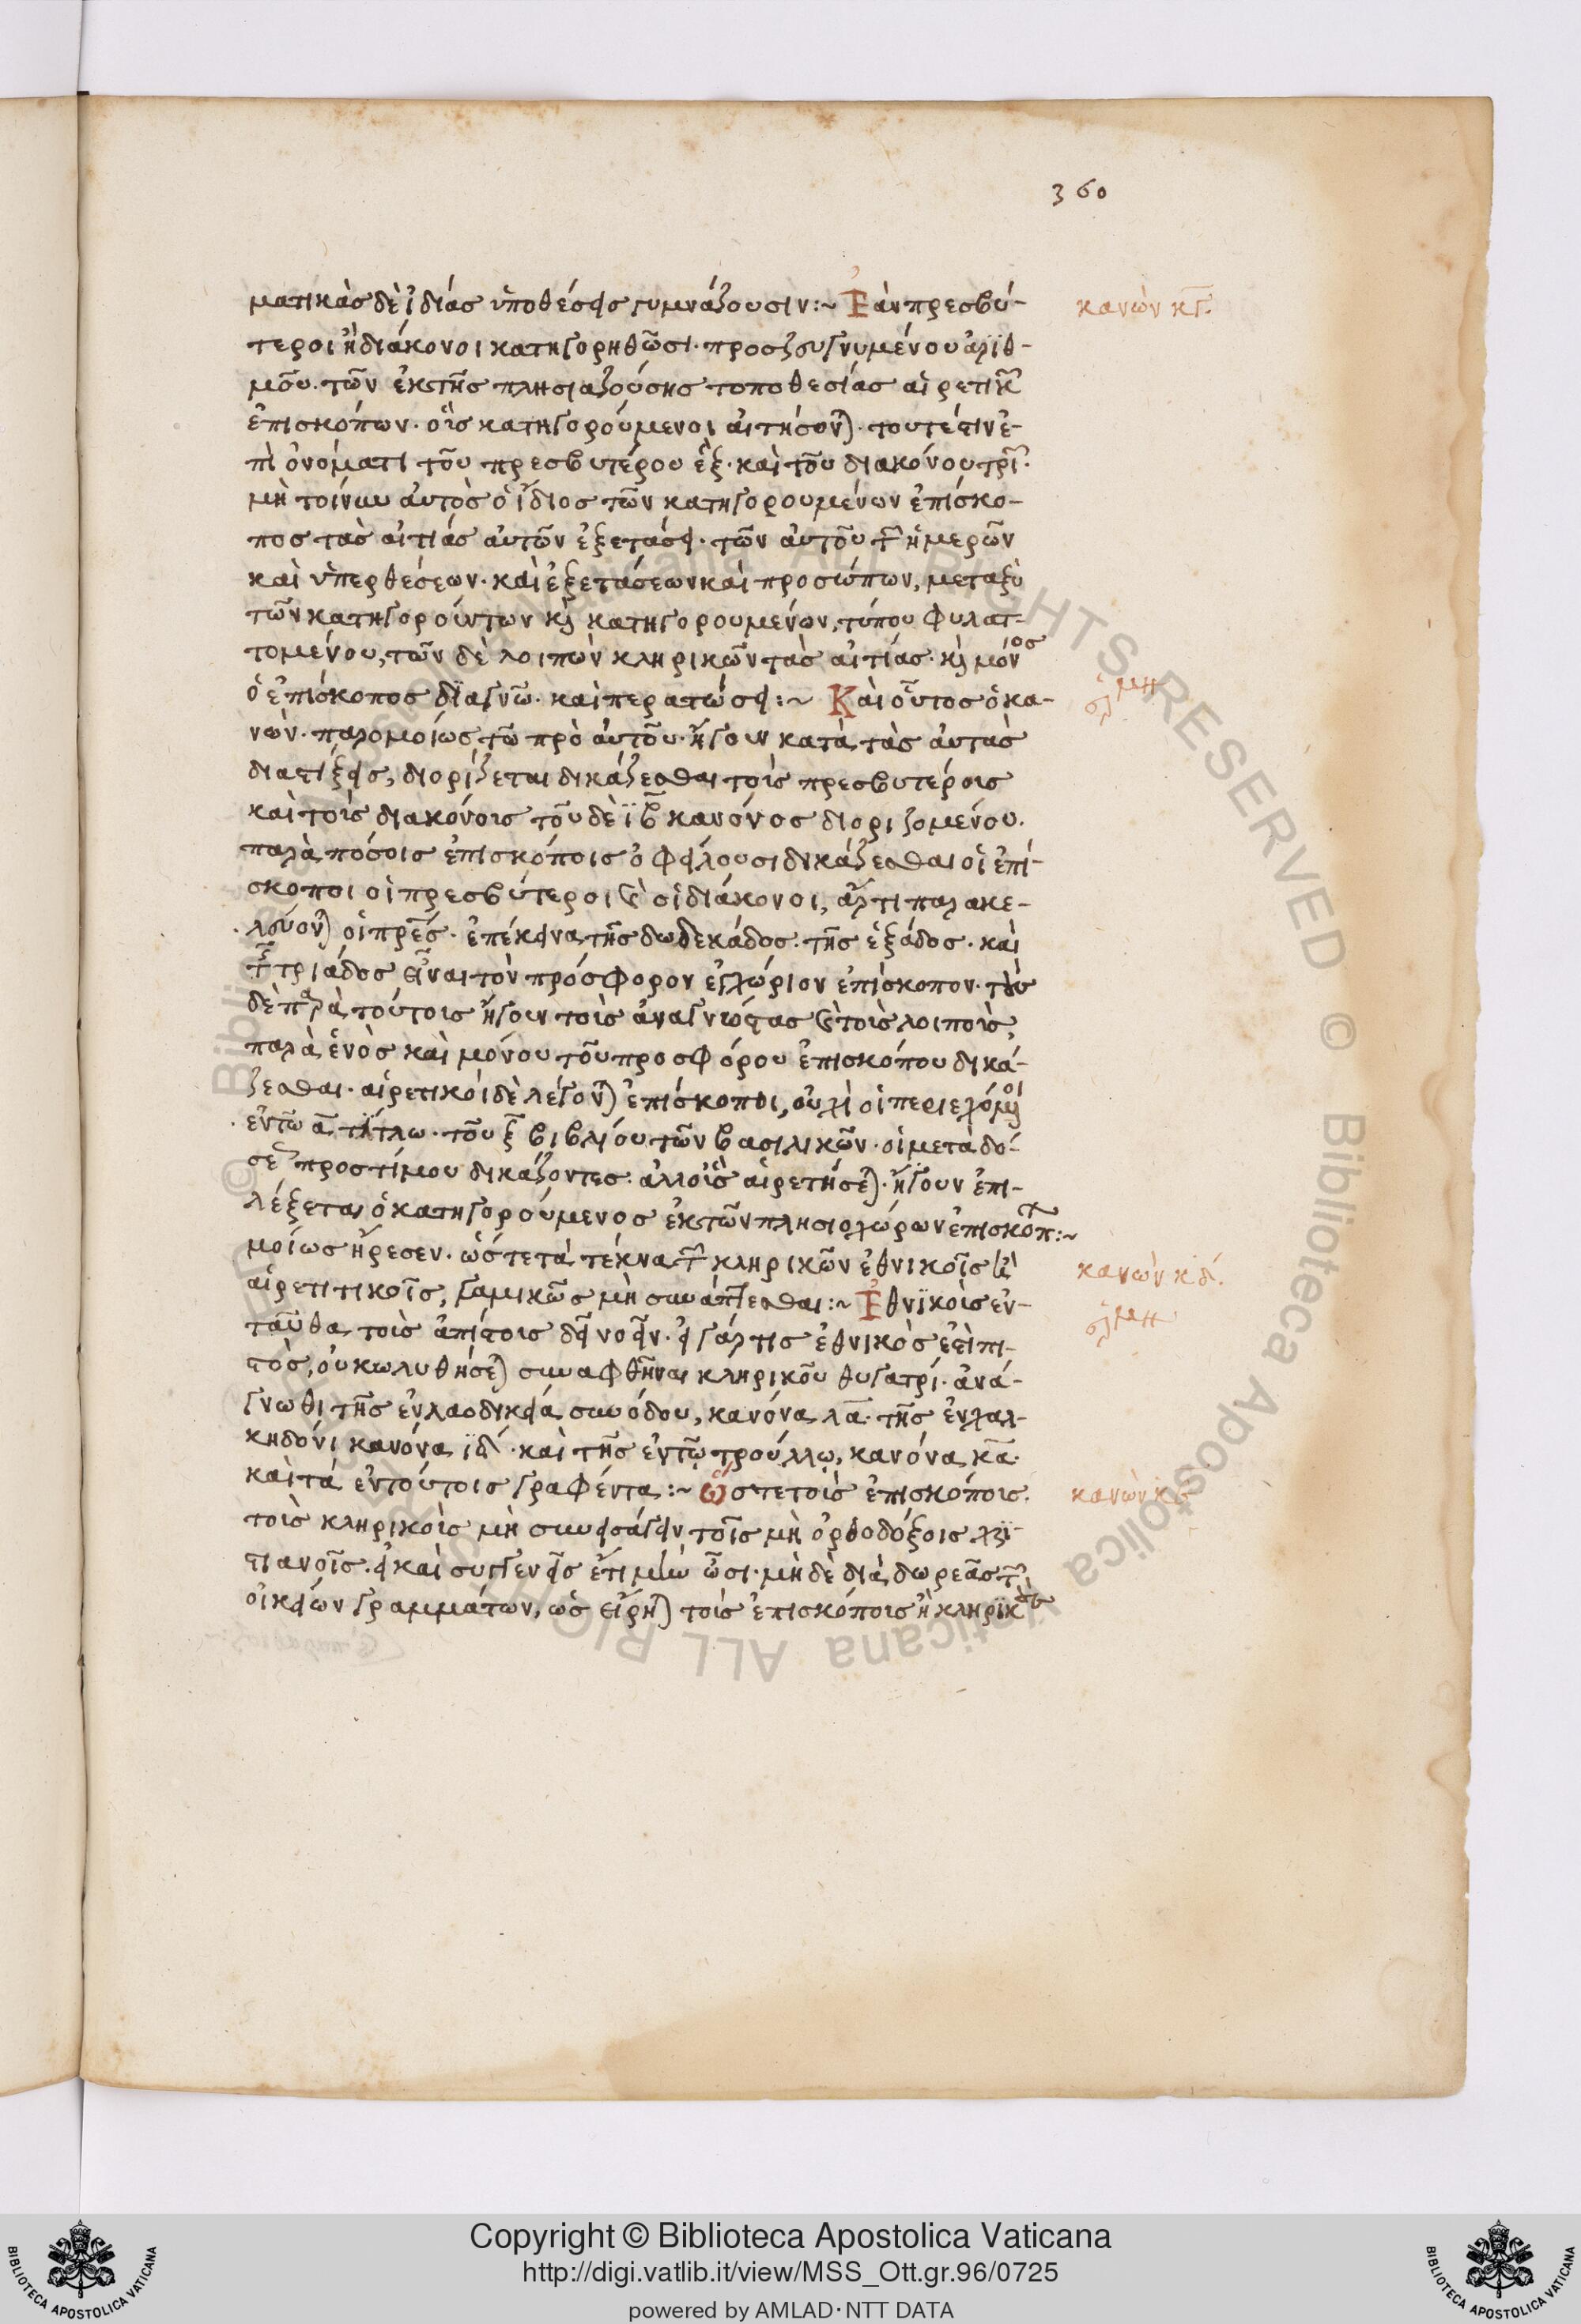 360
ματικὰς δὲ ἰδίας ὑποθέσεις γυμνάζουσιν:~ Ἐὰν πρεσβύ-
κανὼν κγ.
τεροι ἢ διάκονοι κατηγορηθῶσι· προσζευγνυμένου ἀριθ-
μοῦ. τῶν ἐκ τῆς πλησιαζούσης τοποθεσίας αἱρετικῶν
ἐπισκόπων· οὓς κατηγορούμενοι αἰτήσονται· τουτέστιν ἐ-
πὶ ὀνόματι τοῦ πρεσβυτέρου ἓξ· καὶ τοῦ διακόνου τρεῖς·
μὴ τοίνυν αὐτὸς ὁ ἴδιος τῶν κατηγορουμένων ἐπίσκο-
πος τὰς αἰτίας αὐτῶν ἐξετάσει· τῶν αὐτοῦ τῶν ἡμερῶν
καὶ ὑπερθέσεων· καὶ ἐξετάσεων καὶ προσώπων, μεταξὺ
τῶν κατηγορούντων καὶ κατηγορουμένων, τύπου φυλατ-
τομένου, τῶν δὲ λοιπῶν κληρικῶν τὰς αἰτίας· καὶ μόνος
ὁ ἐπίσκοπος διαγνῶ· καὶ περατώσει:~ Καὶ οὗτος ὁ κα-
νὼν· παρομοίως τῶ πρὸ αὐτοῦ· ἤγουν κατὰ τὰς αὐτὰς
διαστίξεις, διορίζεται δικάζεσθαι τοῖς πρεσβυτέροις
καὶ τοῖς διακόνοις τοῦ δὲ ϊβ κανόνος διοριζομένου.
παρὰ πόσοις ἐπισκόποις ὀφείλουσι δικάζεσθαι οἱ ἐπί-
σκοποι οἱ πρεσβύτεροι καὶ οἱ διάκονοι, ἄρτι παρακε-
λεύονται οἱ πρες· ἐπέκεινα τῆς δωδεκάδος· τῆς ἑξάδος· καὶ
τῆς τριάδος εἶναι τὸν πρόσφορον ἐγχώριον ἐπίσκοπον· τοὺς
δὲ παρὰ τούτοις ἤγουν τοῖς ἀναγνώστας καὶ τοῖς λοιποῖς,
παρὰ ἑνὸς καὶ μόνου τοῦ προσφόρου ἐπισκόπου δικά-
ζεσθαι· αἱρετικοὶ δὲ λέγονται ἐπίσκοποι, οὐχὶ οἱ περιεχόμενοι
ἐν τῶ α τίτλω· τοῦ ξ βιβλίου τῶν βασιλικῶν· οἱ μετὰ δό-
σεως προστίμου δικάζοντες· ἀλλ' οἷς αἱρετήσεται· ἤγουν ἐπι-
λέξεται ὁ κατηγορούμενος ἐκ τῶν πλησιοχώρων ἐπισκόπων:~
μοίως ἤρεσεν· ὥστε τὰ τέκνα τῶν κληρικῶν ἐθνικοῖς καὶ
κανὼν κδ.
αἱρετιτικοῖς, γαμικῶς μὴ συνάπτεσθαι:~ Ἐθνϊκοὶς ἐν-
ταῦθα, τοὶς ἀπίστοις δεῖ νοεῖν· εἰ γάρ τις ἐθνικὸς ἐστὶ πι-
στὸς, οὐ κωλυθήσεται συναφθῆναι κληρικοῦ θυγατρί· ἀνά-
γνωθι τῆς ἐν λαοδικεία συνόδου, κανόνα λα· τῆς ἐν χαλ-
κηδόνι κανόνα ϊδ· καὶ τῆς ἐν τῶ τρούλλω, κανόνα κα·
καὶ τὰ ἐν τούτοις γραφέντα:~ Ὥστε τοὶς ἐπισκόποις.
τοὶς κληρικοὶς μὴ συνεισάγειν τοῖς μὴ ὀρθοδόξοις χρι-
στιανοῖς· εἰ καὶ συγγενεῖς ἔτι μὴν ὦσι· μὴ δὲ διὰ δωρεᾶς τῶν
οἰκείων γραμμάτων, ὡς εἴρηται τοὶς ἐπισκόποις ἢ κληρϊκοὺς
Copyright © Biblioteca Apostolica Vaticana
http://digi.vatlib.it/view/MSS_Ott.gr.96/0725
powered by AMLAD·NTT DATA
BIBLIOTECA APOSTOLICA VATICANA
BIBLIOTECA APOSTOLICA VATICANA